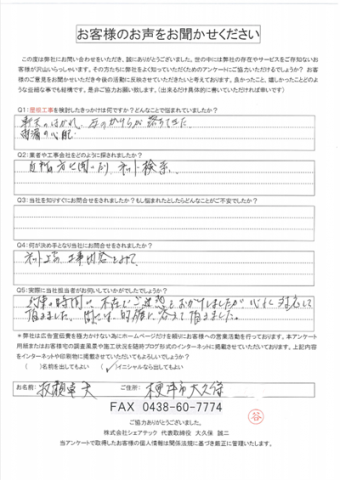 お客様のお声をお聞かせください
この度は弊社にお問い合わせをいただき、誠にありがとうございました。世の中には弊社の存在やサービスをご存知ないお
客様が沢山いらっしゃいます。その方たちに弊社をよく知っていただくためのアンケートにご協力いただけるでしょうか？お客
様のご意見をお聞かせいただき今後の活動に反映させていただきたいと考えております。良かったこと、嬉しかったことどの
ような些細な事でも結構です。是非ご協力お願い致します。（出来るだけ具体的に書いていただければ幸いです）
Q1：屋根工事を検討したきっかけは何ですか？どんなことで悩まれていましたか？
軒天のはがれ、瓦のかけらが落ちてきた
雨漏の心配
Q2：業者や工事会社をどのように探されましたか？
ネット検索
Q3：当社を知りすぐにお問合せをされましたか？もし悩まれたとしたらどんなことがご不安でしたか？
Q4：何が決め手となり当社にお問合せをされましたか？
ネット上の工事内容をみて
Q5：実際に当社担当者がお伺いしていかがでしたでしょうか？
の時間に不在とご迷惑をおかけしましたが
頂きました。的確に答えて頂きました。
＊弊社は広告宣伝費を極力かけない為にホームページだけを頼りにお客様への営業活動を行っております。本アンケート
用紙またはお客様宅の調査風景や施工状況を随時ブログ形式のインターネットに掲載させていただいております。上記内容
をインターネットや印刷物に掲載させていただいてもよろしいでしょうか？
（　）名前を出してもよい　（✓）イニシャルなら出してもよい
お名前：　ご住所：木更津市大久保
FAX 0438-60-7774
ご協力ありがとうございました。
株式会社シェアテック　代表取締役　大久保 誠二
当アンケートで取得したお客様の個人情報は関係法規に基づき厳正に管理いたします。